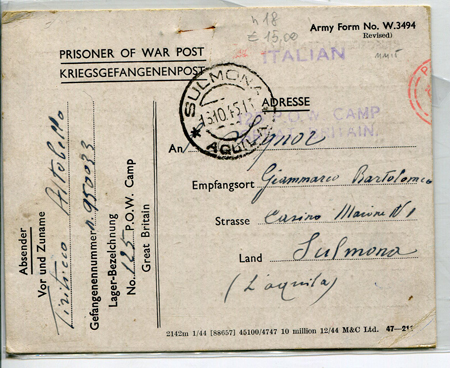 h 18
€ 15,00
Army Form No. W.3494
(Revised)
PRISONER OF WAR POST
KRIEGSGEFANGENENPOST
ITALIAN
SULMONA
AQUILA
ADRESSE
P.O.W. CAMP
BRITAIN.
An Signor
Empfangsort Giammarco Bartolomeo
Strasse Casino Maione N 1
Land Sulmona
(L'aquila)
Absender
Vor und Zuname
Gefangenennummer n. 950033
Lager-Bezeichnung
No. 125 P.O.W. Camp
Great Britain
2142m 1/44 [88657] 45100/4747 10 million 12/44 M&C Ltd.